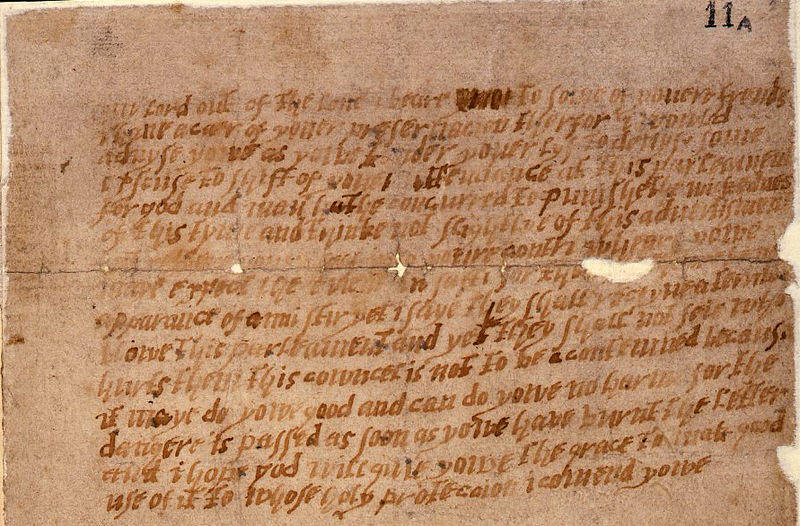 11A
lord out of the love i beare to some of youere frends
i have a caer of youer preservacion therfor i would
advyse yowe as yowe tender youer lyf to devyse some
exscuse to shift of youer attendance at this parleament
for god and man hathe concurred to punishe the wickednes
of this tyme and thinke not slightlye of this advertisment
youre contri wheare yowe
maye expect the event in safti for
apparance of anni stir yet i saye they shall receyve a terrible
blowe this parleament and yet they shall not seie who
hurts them this cowncel is not to be acontemned because
it maye do yowe good and can do yowe no harme for the
dangere is passed as soon as yowe have burnt the letter
and i hope god will give yowe the grace to mak good
use of it to whose holy proteccion i comend yowe